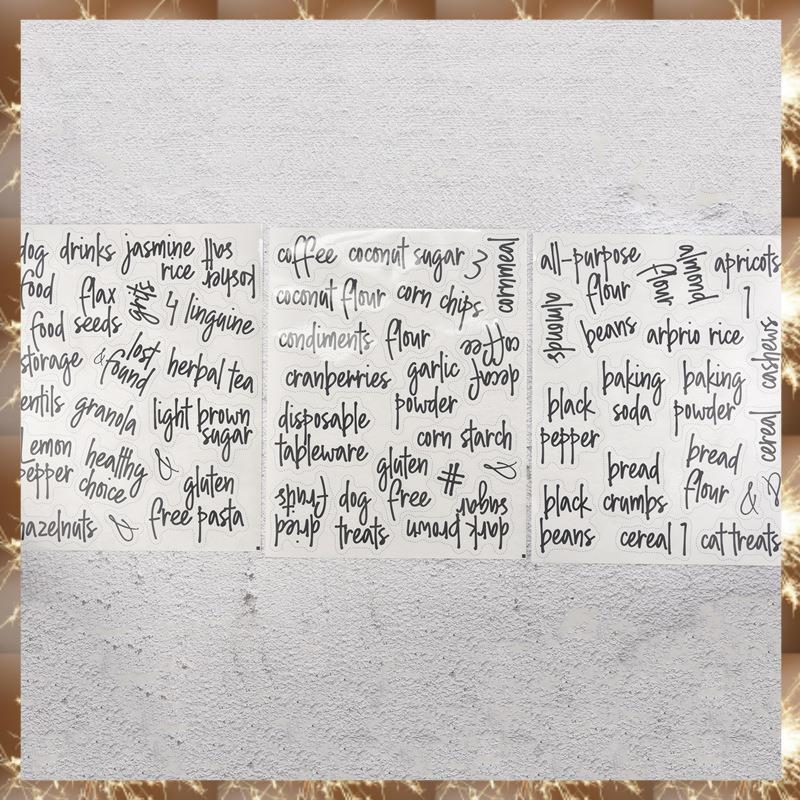 dog food
drinks
jasmine rice
kosher salt
flax seeds
grits
4
linguine
food storage
&
lost & found
herbal tea
lentils
granola
light brown sugar
lemon pepper
healthy choice
&
gluten free pasta
hazelnuts
&
coffee
coconut sugar
3
cornmeal
coconut flour
corn chips
condiments
flour
decaf coffee
cranberries
garlic powder
disposable tableware
corn starch
gluten free
#
&
dried fruits
dog treats
dark brown sugar
all-purpose flour
almond flour
apricots
1
almonds
beans
arbrio rice
cashews
baking soda
baking powder
black pepper
cereal
bread crumbs
bread flour
&
&
black beans
cereal
1
cat treats